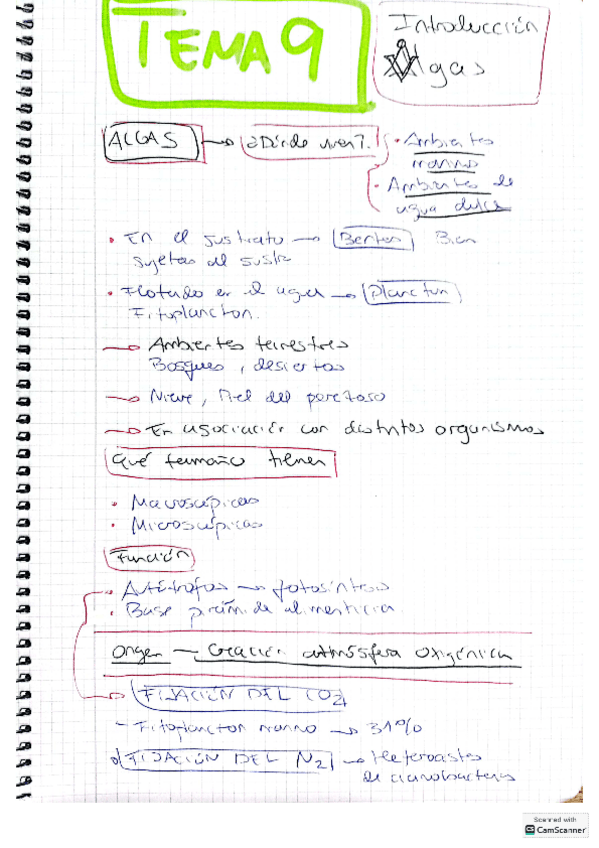 TEMA 9
Introducción
Algas
ALGAS → ¿Dónde viven?
• Ambientes
marinos
• Ambientes de
agua dulce
• En el sustrato → Bentos Bien
sujetas al sustr
• Flotado en el agua → Plancton
Fitoplancton.
→ Ambientes terrestres
Bosques, desiertos
→ Nieve, Piel del perezoso
→ En asociación con distintos organismos
Qué tamaño tienen
• Macroscópicas
• Microscópicas
Función
• Autótrofas → fotosíntesis
• Base pirámide alimenticia
Origen → Creación atmósfera oxigénica
FIJACIÓN DEL CO2
- Fitoplancton marino → 31%
FIJACIÓN DEL N2 → Heterocistos
de cianobacterias
Scanned with
CamScanner